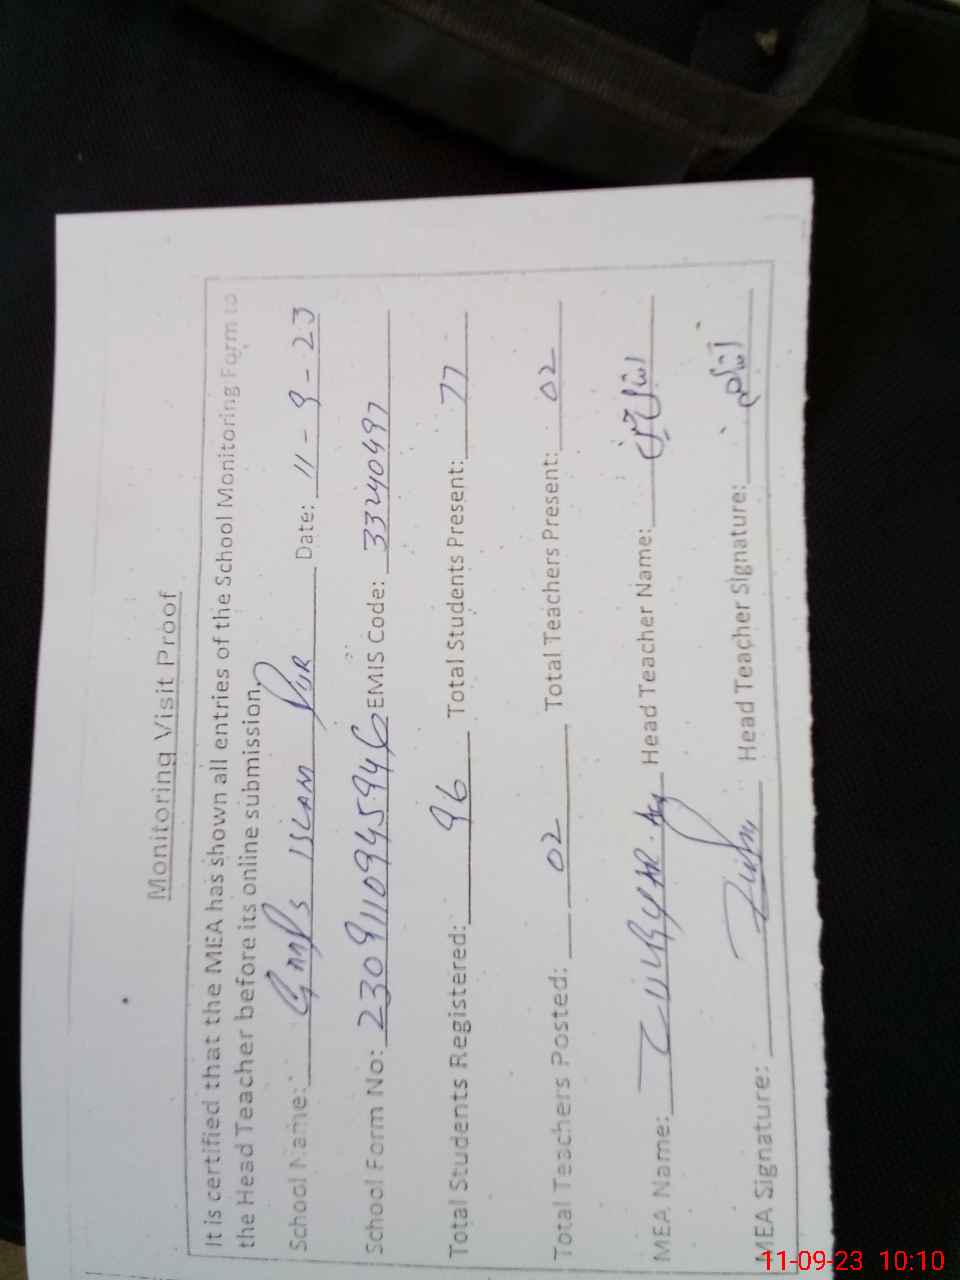 Monitoring Visit Proof
It is certified that the MEA has shown all entries of the School Monitoring Form to
the Head Teacher before its online submission.
School Name: GMPS ISLAM PUR Date: 11-9-23
School Form No: 2309110945946 EMIS Code: 33240497
Total Students Registered: 96 Total Students Present: 77
Total Teachers Posted: 02 Total Teachers Present: 02
MEA Name: Head Teacher Name:
MEA Signature: Head Teacher Signature:
11-09-23 10:10